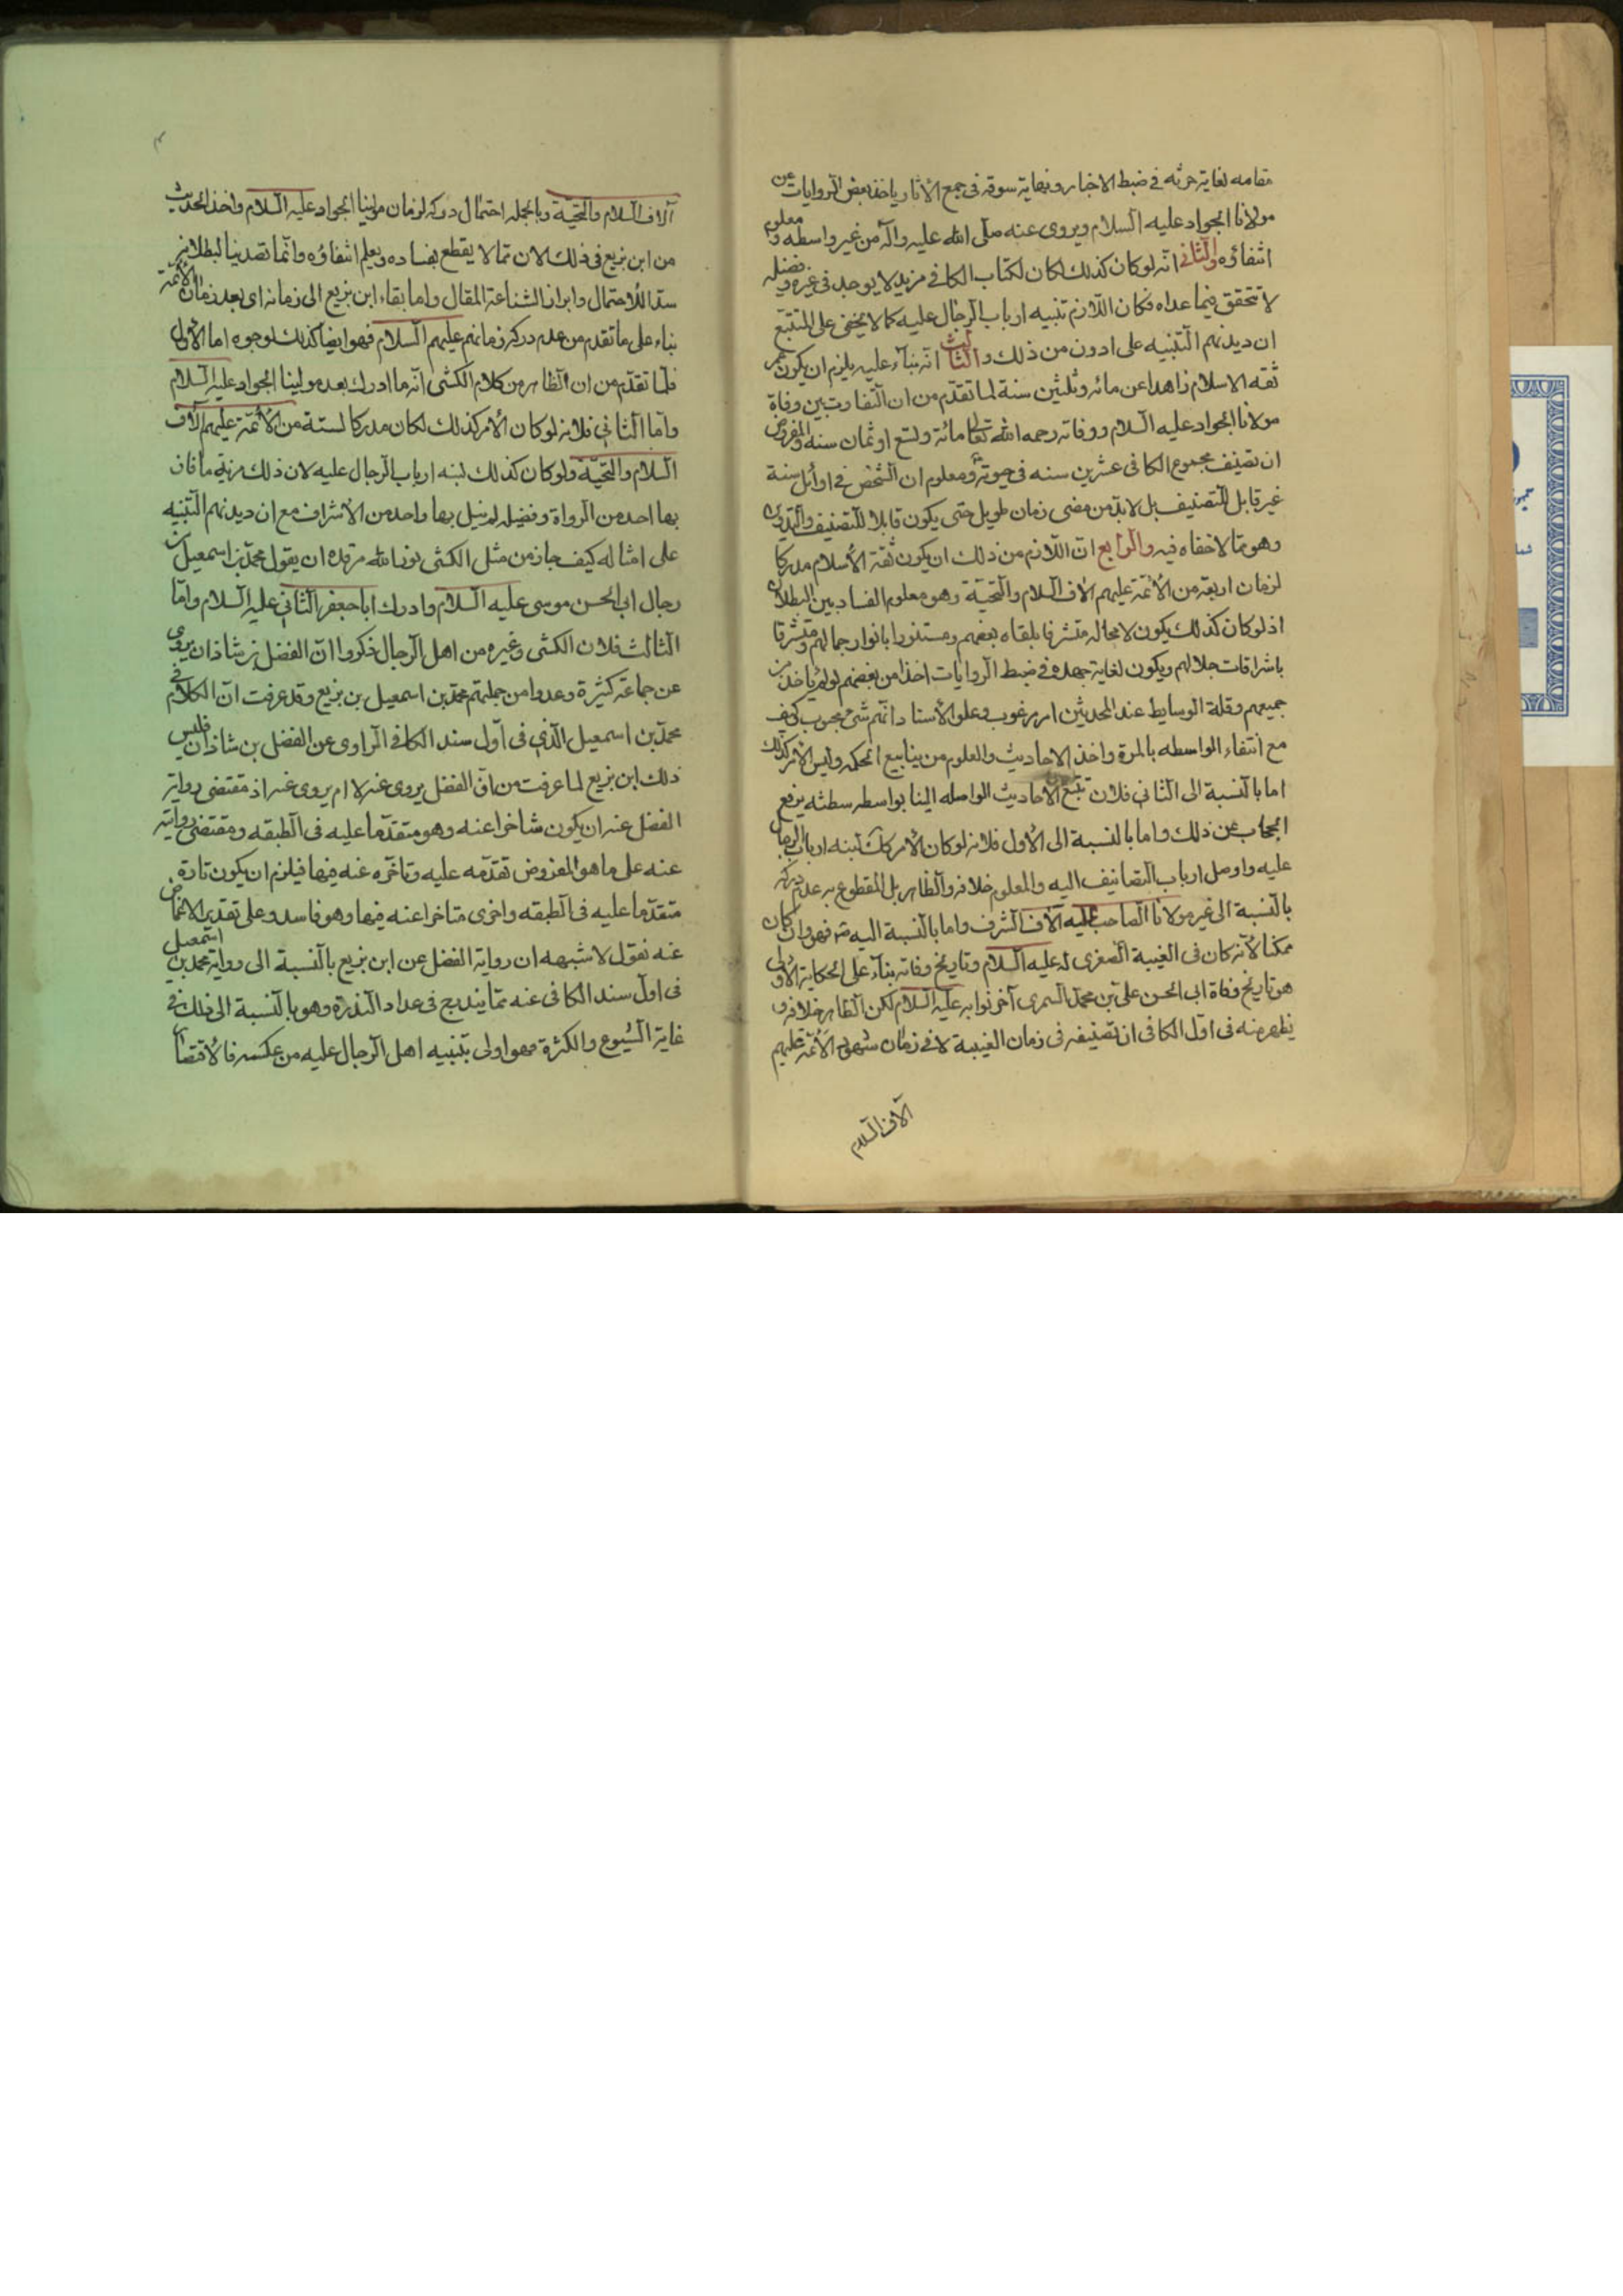 مقامه لغاية حرثه في ضبط الاخبار ونهاية سوقه في جمع الأثار ياخذ بعض الروايات عن
مولانا الجواد عليه السلام ويروى عنه صلى الله عليه وآله من غير واسطه ومعلوم
انتفاؤه والثاني انّه لو كان كذلك لكان لكتاب الكافي مزيد لا يوجد في غيره وفضله
لا تتحقق فيما عداه فكان اللازم تنبيه ارباب الرجال عليه كما لا يخفى على المتتبّع
ان ديدنهم التنبيه على ادون من ذلك والثالث انّه بناءً عليه يلزم ان يكون عمر
ثقه الاسلام زاهدا عن مائه وثلثين سنة لما تقدّم من ان التفاوت بين وفاة
مولانا الجواد عليه السلام ووفاته رحمه الله تعالى مائة وتسع او ثمان سنه والمفروض
ان تصنيف مجموع الكافى عشرين سنه في حيوته ومعلوم ان الشخص في اوائل سنة
غير قابل للتصنيف بل لابدّ من مضى زمان طويل حتى يكون قابلا للتصنيف والتدوين
وهو ممّا لا خفاء فيه والرابع انّ اللازم من ذلك ان يكون ثقة الأسلام مدركا
لزمان اربعة من الأئمّة عليهم الاف السلام والتحيّة وهو معلوم الفساد بين البطلان
اذ لو كان كذلك يكون لا محاله متشرفا بلقاء بعضهم ومستنورا بانوار جمالهم ومتشرقا
باشراقات جلالهم ويكون لغاية جهده في ضبط الروايات اخذا من بعضهم لو لم ياخذ من
جميعهم وقلة الوسايط عند المحدثين امر مرغوب وعلو الأسناد انهم شئ محبوب كيف
مع انتفاء الواسطه بالمرة واخذ الاحاديث والعلوم من ينابيع الحكمه وليس الأمر كذلك
اما بالنسبة الى الثاني فلان تتبّع الأحاديث الواصله الينا بواسطه يرفع
الحجاب عن ذلك واما بالنسبة الى الأول فلانه لو كان الأمر كك لنبه ارباب الرجال
عليه واوصل ارباب التصانيف اليه والمعلوم خلافه والظاهر بل المقطوع به عدم دركه
بالنسبة الى غير مولانا الصاحب عليه الآف الشرف واما بالنسبة اليه فهو وان كان
ممكنا لأنّه كان في الغيبة الصغرى له عليه السلام وتاريخ وفاته بناءً على الحكاية الأولى
هو تاريخ وفاة ابى الحسن على بن محمد السمرى آخر نوابه عليه السلام لكن الظاهر خلافه و
يظهر منه فى اوّل الكافى ان تصنيفه فى زمان الغيبة لا في زمان شهود الأئمّة عليهم
آلاف السلام
آلاف السلام والتحيّة وبالجمله احتمال دركه لزمان مولينا الجواد عليه السلام واخذ الحديث
من ابن بزيع فى ذلك الان ممّا لا يقطع بفساده ويعلم انتفاؤه وانّما تصدينا لبطلانه
سدّا للأحتمال وابرازا لشناعة المقال واما بقاء ابن بزيع الى زمانه اى بعد زمان الأئمّة
بناء على ما تقدم من عدم دركه زمانهم عليهم السلام فهو ايضا كذلك لوجوه اما الأول
فلما تقدّم من ان الظاهر من كلام الكشى انّه ما ادرك بعد مولينا الجواد عليه السلام
وامّا الثانى فلانه لو كان الأمر كذلك لكان مدركا لستة من الأئمّة عليهم الآف
السلام والتحيّة ولو كان كذلك لنبه ارباب الرجال عليه لان ذلك مزية ما فاز
بها احد من الرواة وفضيله لم ينيل بها واحد من الأشراف مع ان ديدنهم التنبيه
على امثاله كيف جاز من مثل الكشى نور الله مرقده ان يقول محمد بن اسمعيل من
رجال ابى الحسن موسى عليه السلام وادرك ابا جعفر الثانى عليه السلام وامّا
الثالث فلان الكشى وغيره من اهل الرجال ذكروا انّ الفضل بن شاذان يروى
عن جماعة كثيرة وعدوا من جملتهم محمد بن اسمعيل بن بزيع وقد عرفت انّ الكلام فى
محمّد بن اسمعيل الّذى فى اوّل سند الكافى الراوى عن الفضل بن شاذان فليس
ذلك ابن بزيع لما عرفت من انّ الفضل يروى عنه لا انه يروى عنه اذ مقتضى رواية
الفضل عنه ان يكون متاخرا عنه وهو متقدّما عليه فى الطبقه ومقتضى روايته
عنه على ما هو المفروض تقدّمه عليه وتاخّره عنه فيها فيلزم ان يكون تارة
متقدّما عليه فى الطبقه واخرى متاخرا عنه فيها وهو فاسد وعلى تقدير الاغماض
عنه نقول لا شبهه ان رواية الفضل عن ابن بزيع بالنسبة الى رواية محمد بن اسمعيل
فى اول سند الكافى عنه ممّا يندرج فى عداد الندرة وهو بالنسبة الى ذلك فى
غاية الشيوع والكثرة فهو اولى بتنبيه اهل الرجال عليه من عكسه فالاقتصار